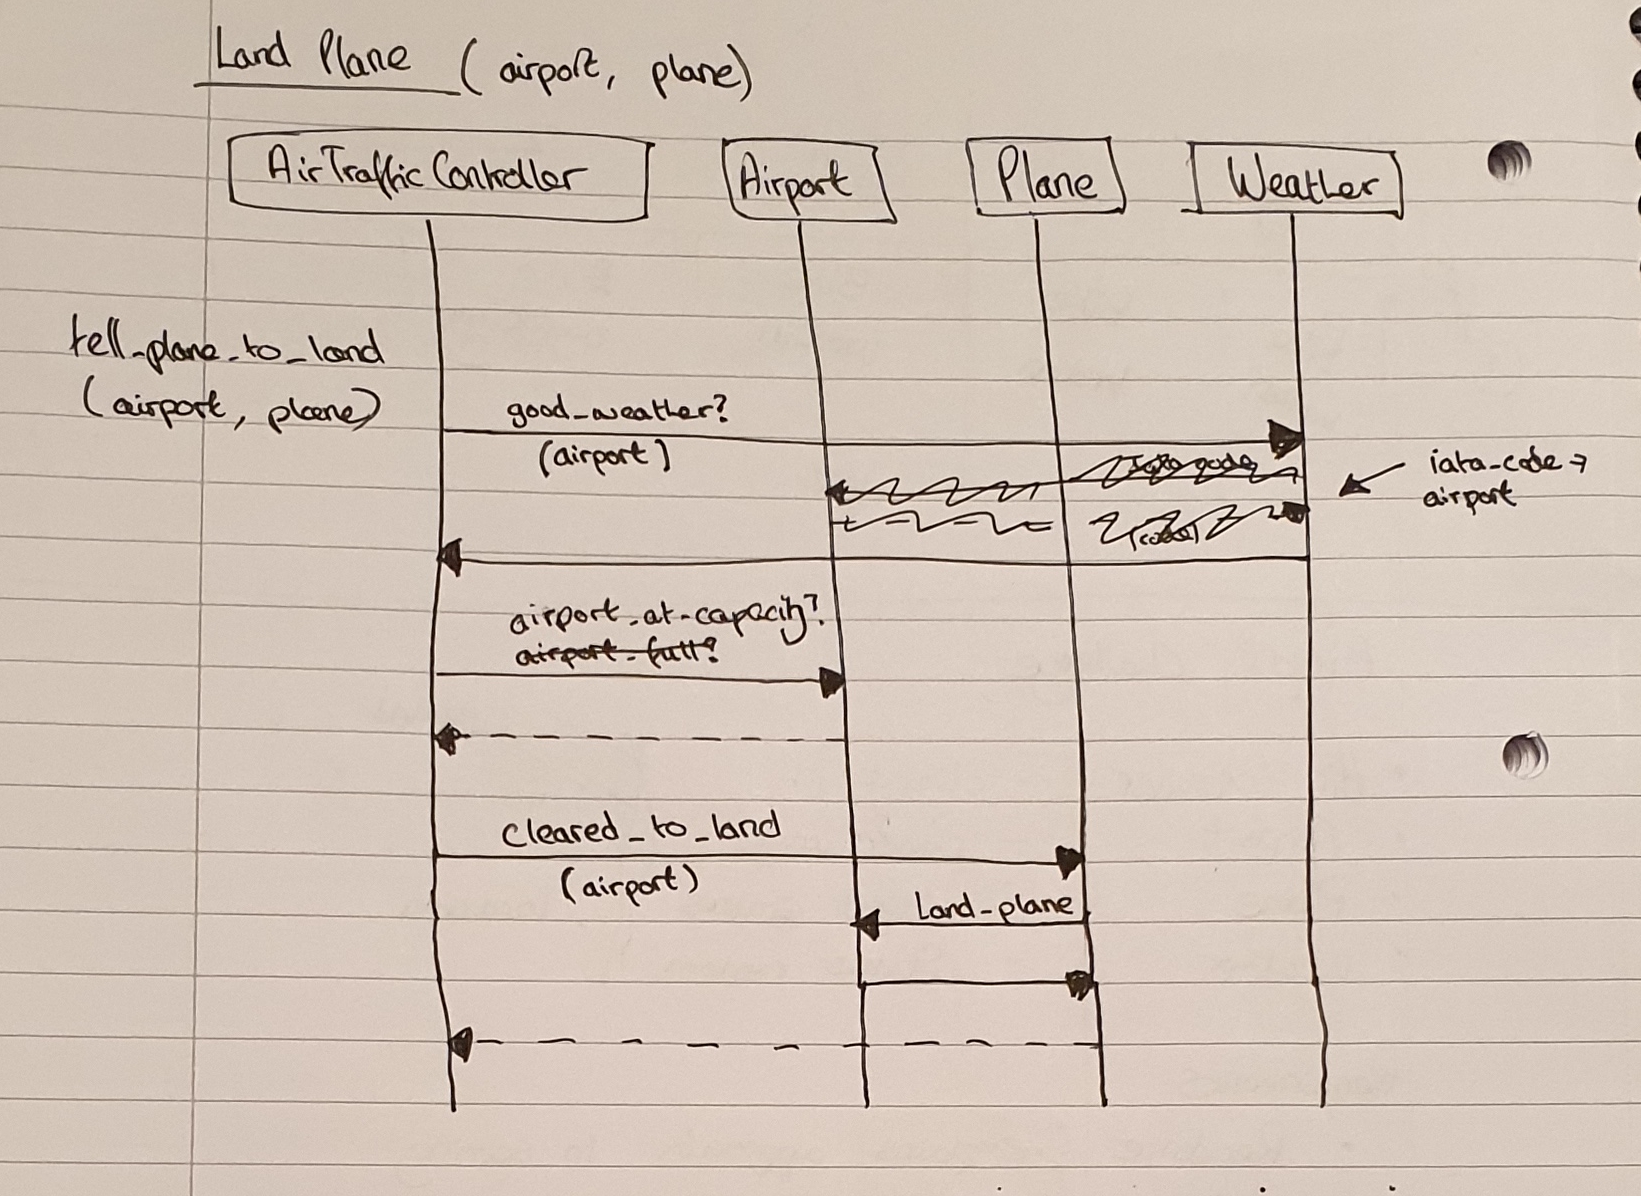 Land Plane (airport, plane)
AirTrafficController Airport Plane Weather
tell_plane_to_land
(airport, plane)
good_weather?
(airport)
iata_code →
airport
airport_at_capacity?
airport_full?
cleared_to_land
(airport)
Land_plane